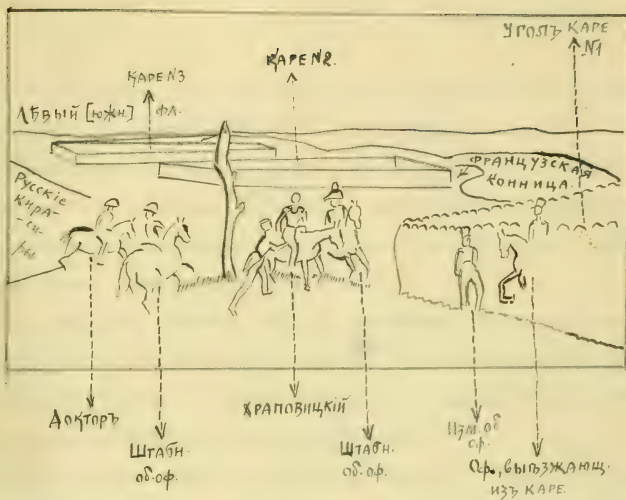 УГОЛЪ КАРЕ
№1
КАРЕ №2.
КАРЕ №3
ЛѢВЫЙ [ЮЖН.] ФЛ.
ФРАНЦУЗСКАЯ
КОННИЦА.
Русскіе
Кира-
-си-
ры
ДОКТОРЪ
ХРАПОВИЦКІЙ
Изм. об
оф.
ШТАБН.
об. оф.
ШТАБН.
об. оф.
Оф., ВЫѢЗЖАЮЩ.
ИЗЪ КАРЕ.